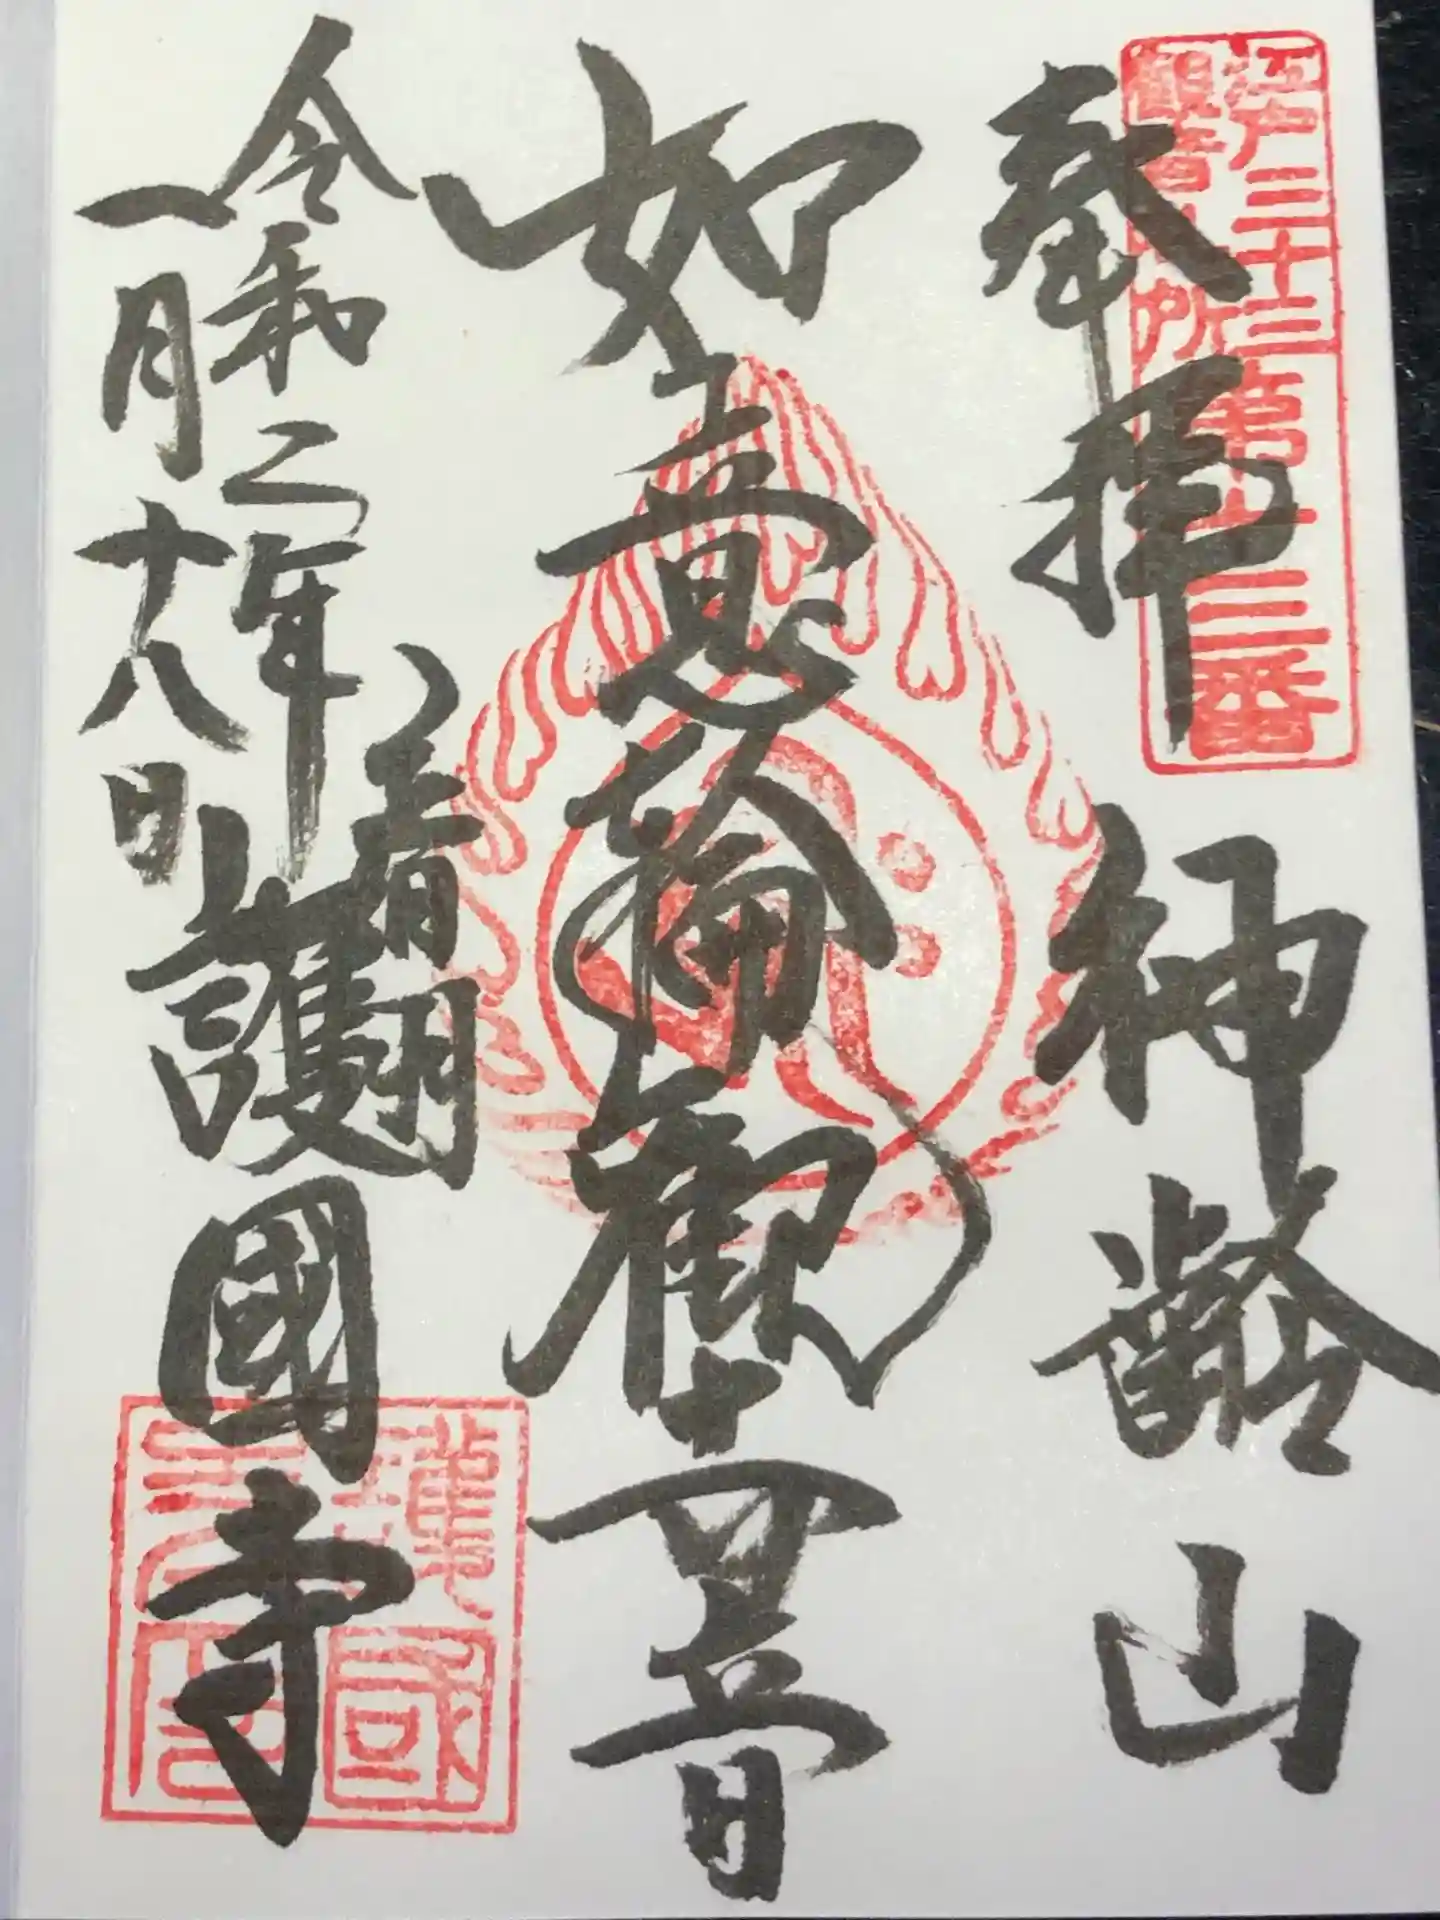 江戸三十三
観音札所
第十三番
奉拝
神齢山
如意輪観世音
令和二年
一月十八日
護國寺
護國